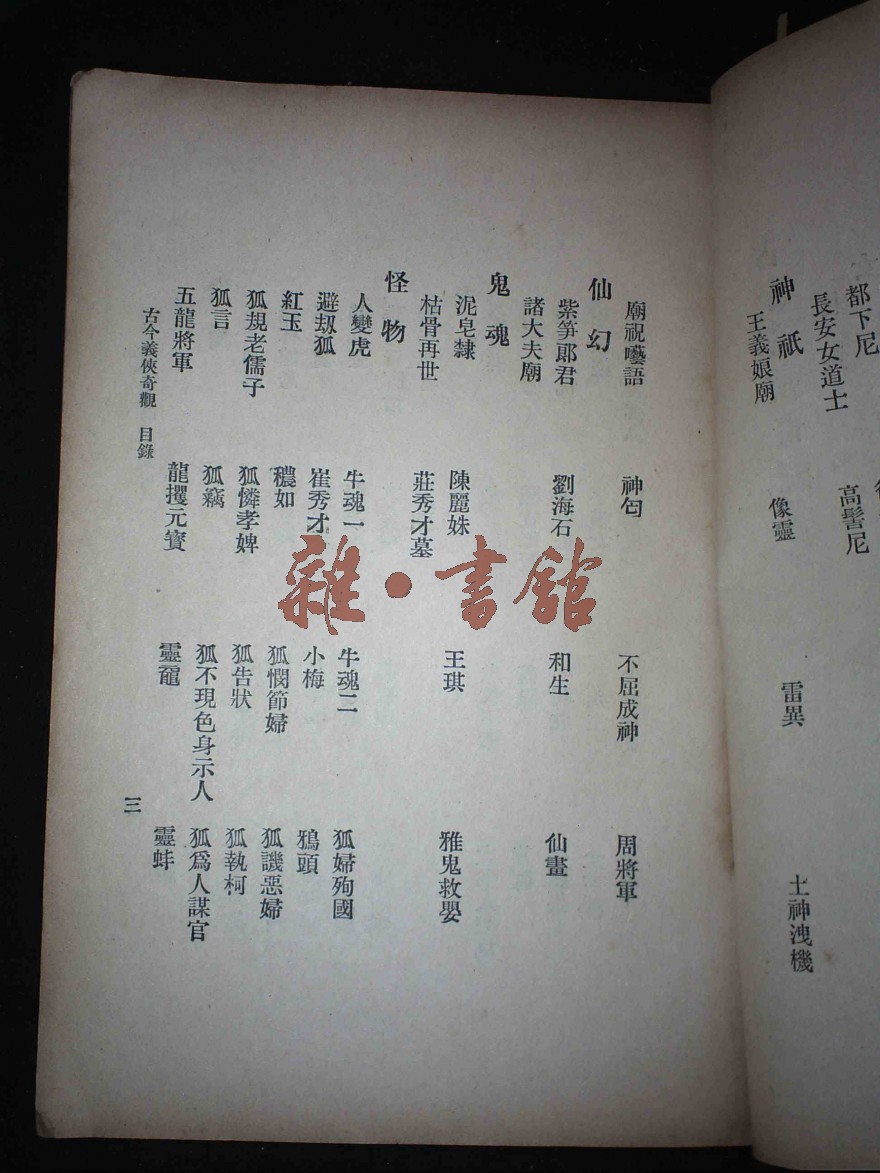 都下尼
長安女道士　高髻尼
神祇
王義娘廟　像靈　雷異　土神洩機
廟祝囈語　神匄　不屈成神　周將軍
仙幻
紫笋郎君　劉海石　和生　仙畫
諸大夫廟
鬼魂
泥皂隸　陳麗姝　王琪　雅鬼救嬰
枯骨再世　莊秀才墓
怪物
人變虎　牛魂一　牛魂二　狐婦殉國
避刼狐　崔秀才　小梅　鴉頭
紅玉　穠如　狐憫節婦　狐譏惡婦
狐規老儒子　狐憐孝婢　狐告狀　狐執柯
狐言　狐竊　狐不現色身示人　狐爲人謀官
五龍將軍　龍攫元寶　靈黿　靈蚌
古今義俠奇觀　目錄　三
雜·書館